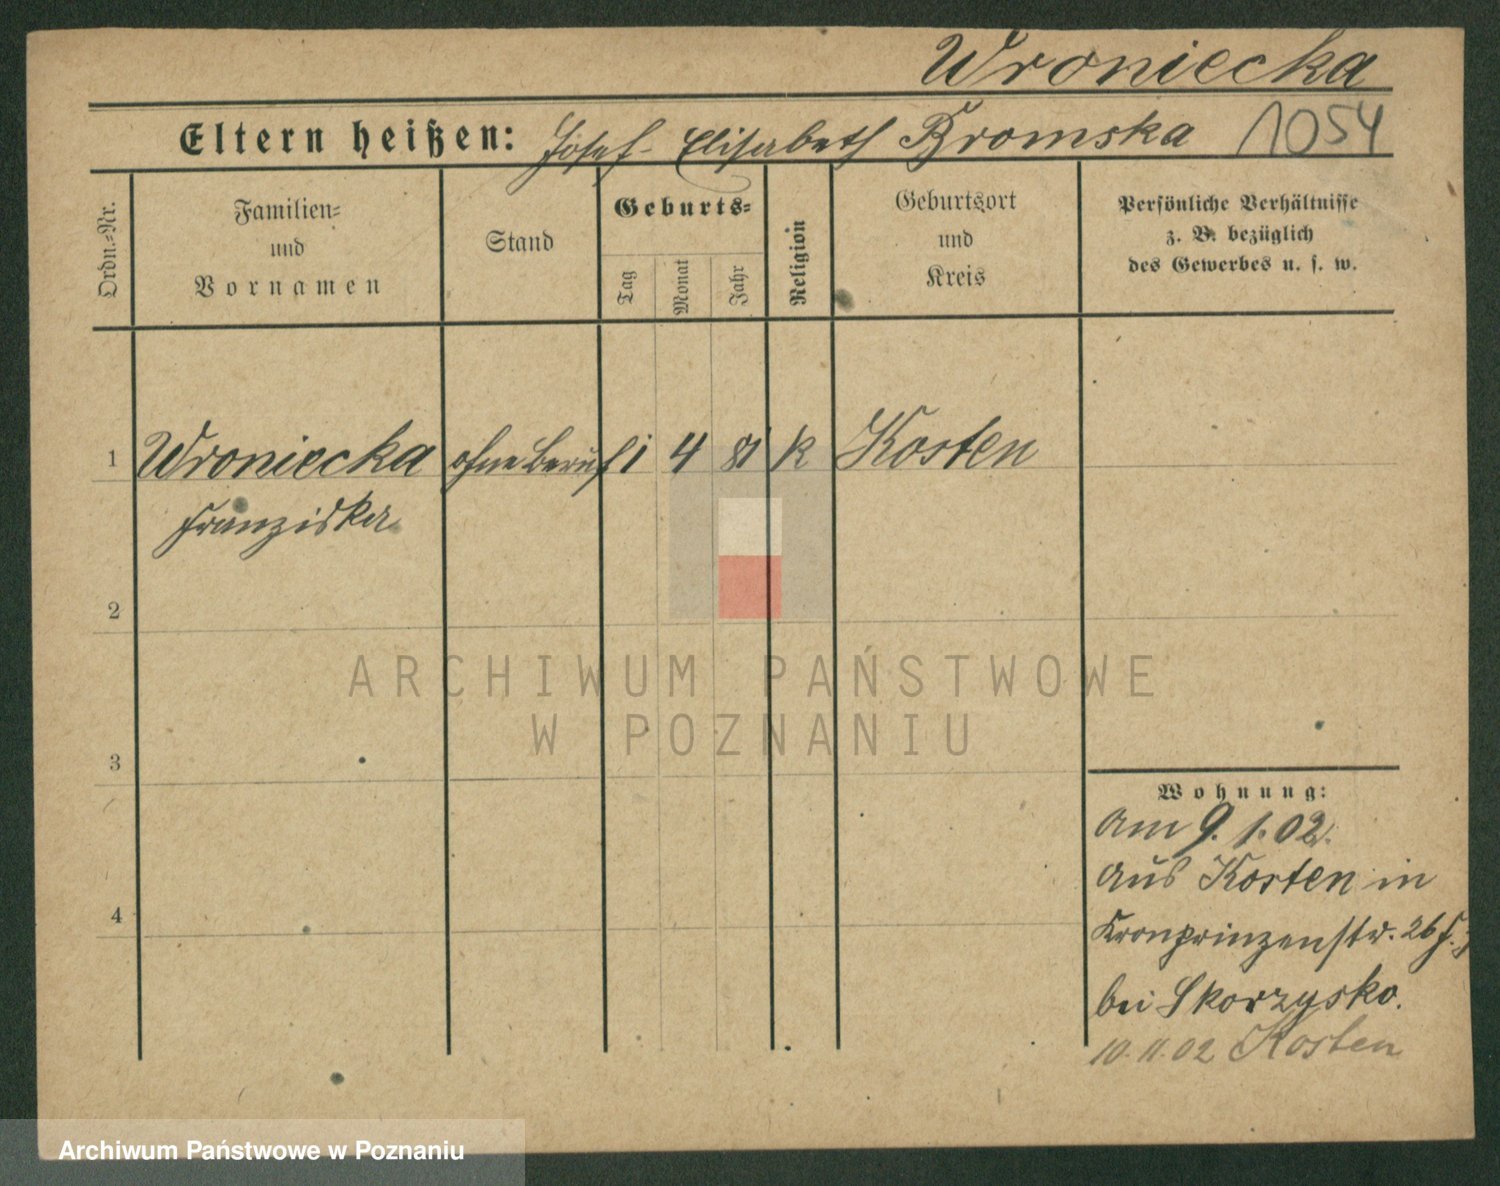 Wroniecka
Eltern heißen: Josef - Elisabeth Bromska 1054
Ordn.-Nr.
Familien-
und
Vornamen
Stand
Geburts-
Tag
Monat
Jahr
Religion
Geburtsort
und
Kreis
Persönliche Verhältnisse
z. B. bezüglich
des Gewerbes u. s. w.
1 Wroniecka ohne Beruf 1 4 81 k Kosten
Franziska
2
3
4
Wohnung:
Am 9. 1. 02.
aus Kosten in
Kronprinzenstr. 26
bei Skorzysko.
10.11.02 Kosten
ARCHIWUM PAŃSTWOWE
W POZNANIU
Archiwum Państwowe w Poznaniu